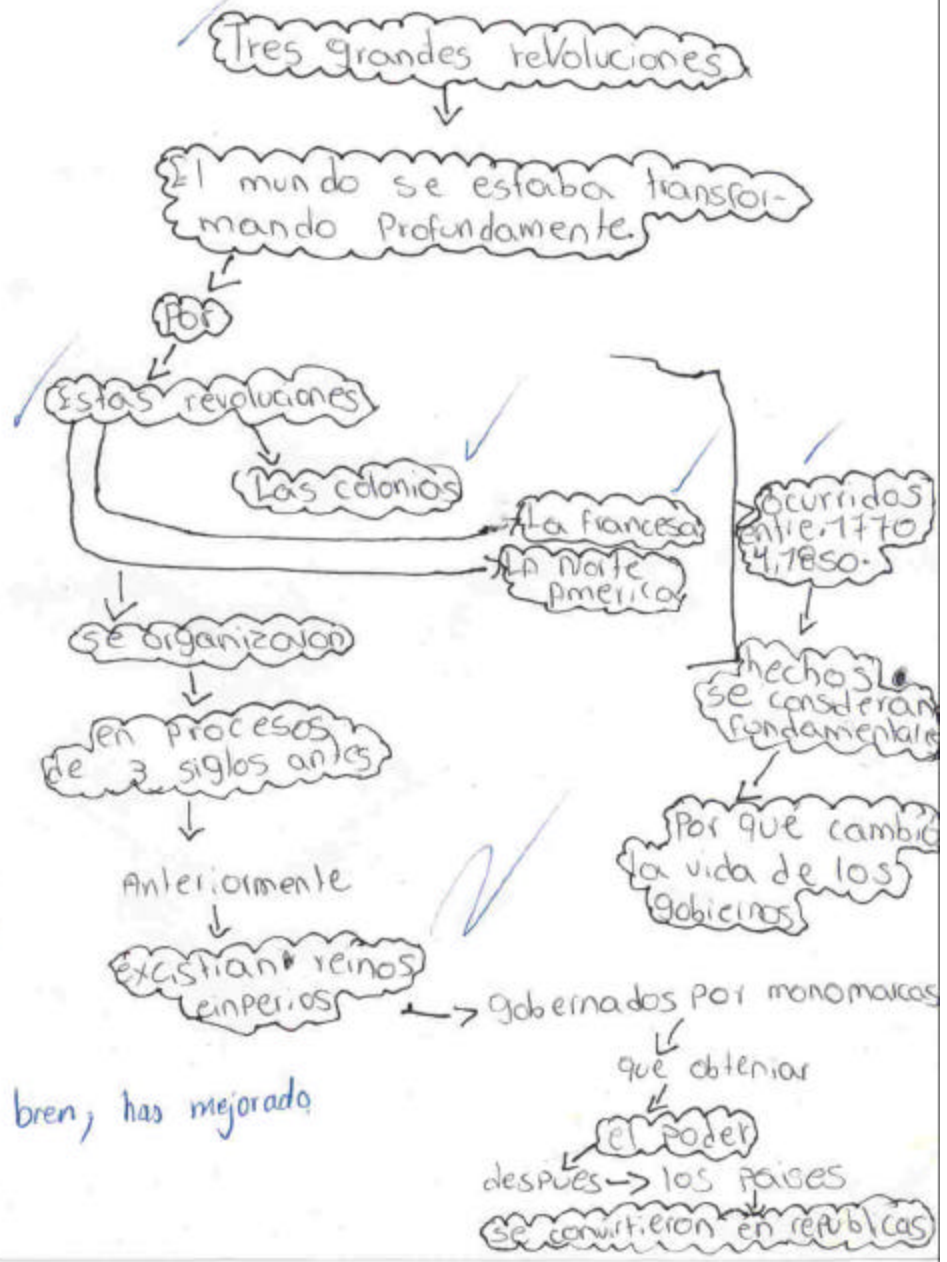 Tres grandes revoluciones
El mundo se estaba transfor-
mando Profundamente.
Por
Estas revoluciones
Las colonias
La francesa
La Norte
America
ocurridos
entre. 1770
y, 1850.
hechos
se consideran
fundamentale
Por que cambio
la vida de los
gobiernos
se organizaron
en procesos
de 3 siglos antes
Anteriormente
excistian reinos
einperios
gobernados por monomarcas
que obtenian
el poder
despues los paises
se convirtieron en republicas
bien, has mejorado